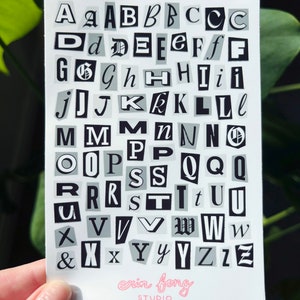 A a A B B B C C C
D d D E E e E f F
F G G G h H H I i i
j J J K K k K L L L
M M M m N N N O
O O P P P Q Q Q
R R R S S S T T t U U
u V V V W W w
X X x Y y Y Z Z z
& 
erin fong
STUDIO